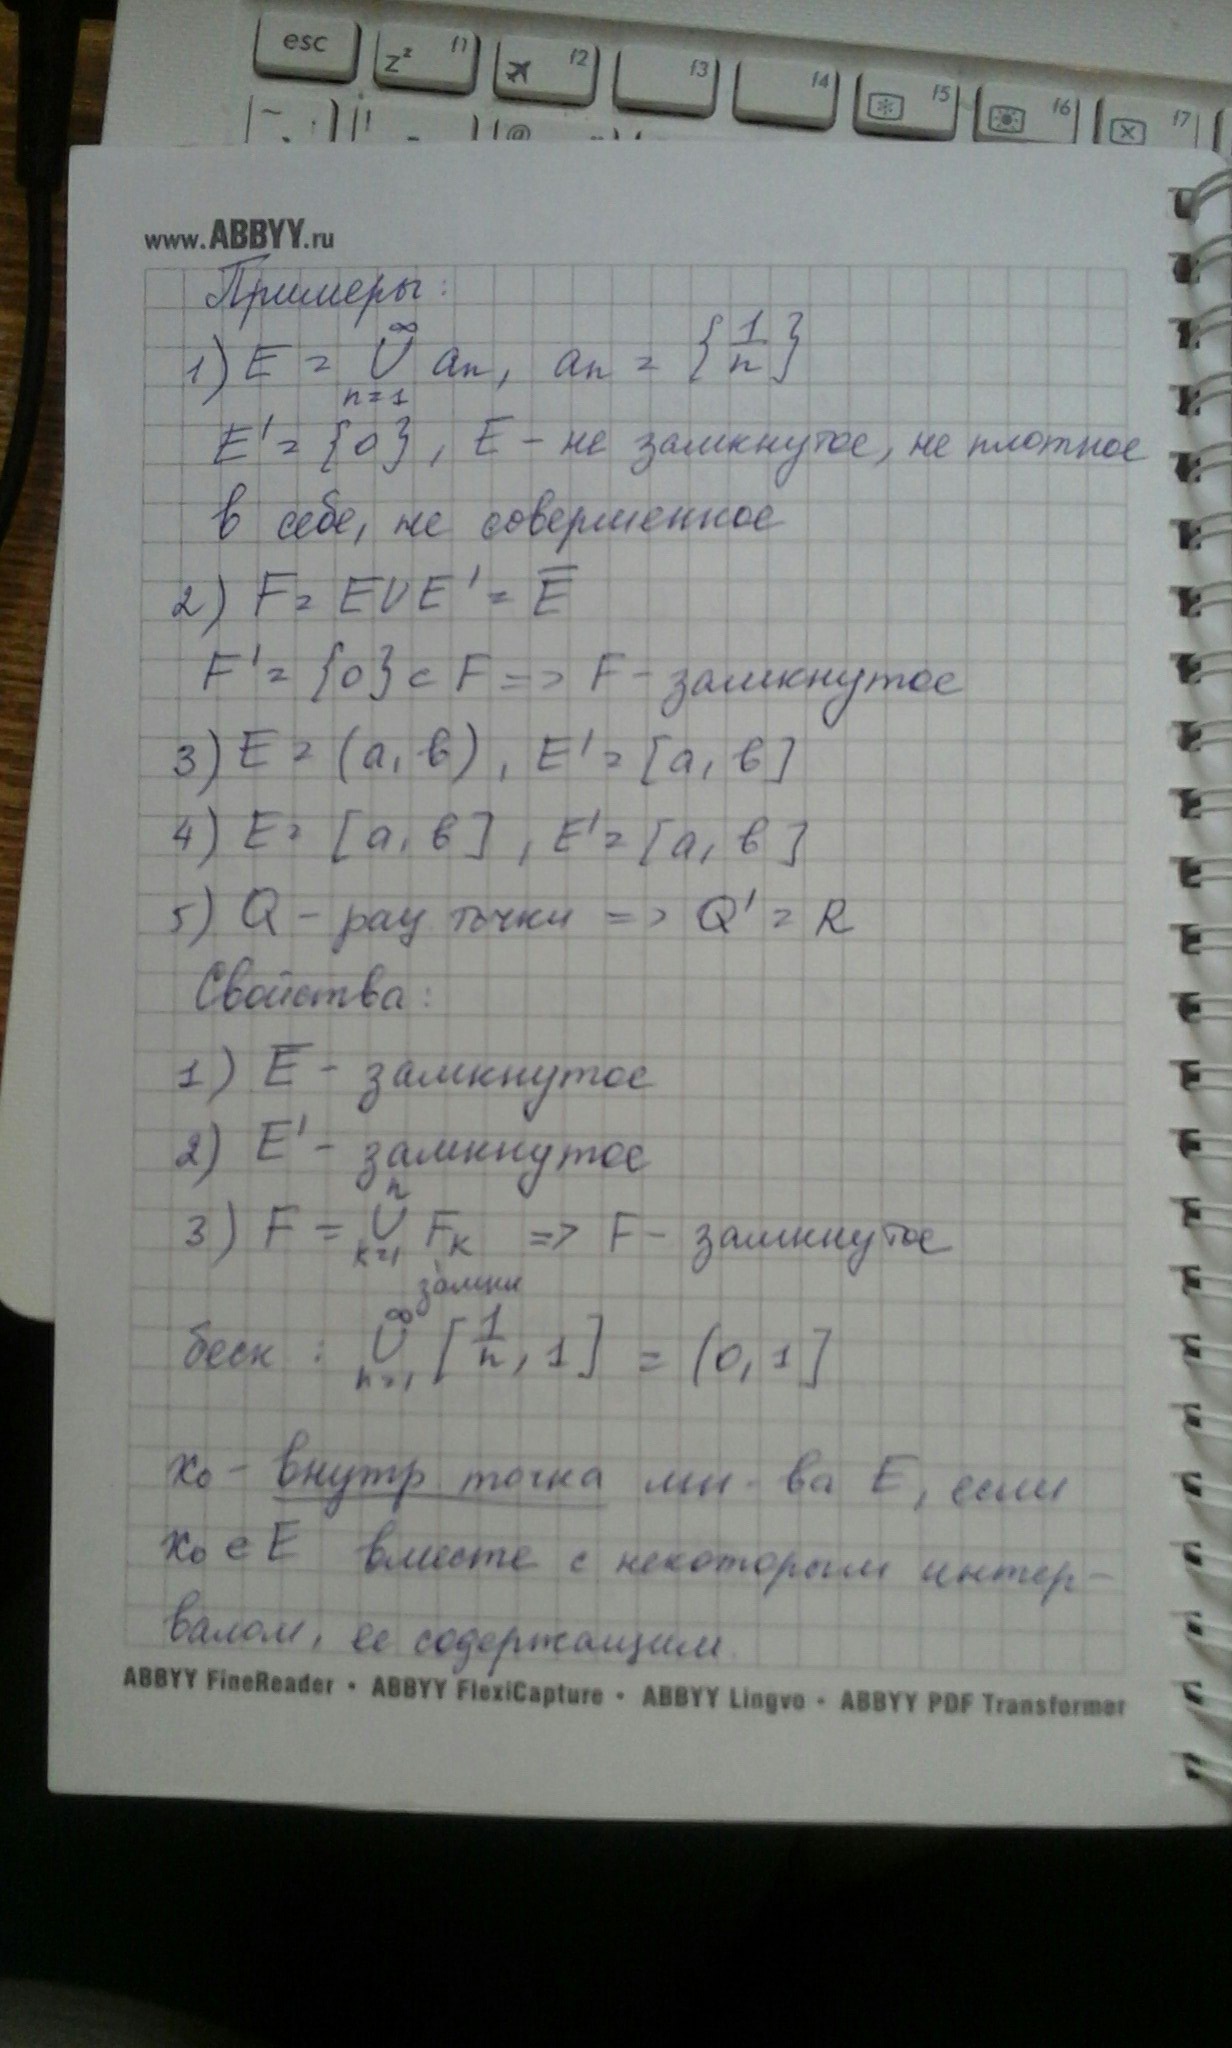 esc
z² f1
f2
f3
f4
f5
f6
f7
~
!
@
www.ABBYY.ru
Примеры:
1) E = ∪_{n=1}^{∞} a_n, a_n = {1/n}
E' = {0}, E - не замкнутое, не плотное
в себе, не совершенное
2) F = E ∪ E' = E̅
F' = {0} ⊂ F => F - замкнутое
3) E = (a, b), E' = [a, b]
4) E = [a, b], E' = [a, b]
5) Q - рац точки => Q' = R
Свойства:
1) E̅ - замкнутое
2) E' - замкнутое
3) F = ∪_{k=1}^{n} F_k => F - замкнутое
замкн
беск : ∪_{n=1}^{∞} [1/n, 1] = (0, 1]
x₀ - внутр точка мн-ва E, если
x₀ ∈ E вместе с некоторым интер-
валом, ее содержащим.
ABBYY FineReader • ABBYY FlexiCapture • ABBYY Lingvo • ABBYY PDF Transformer